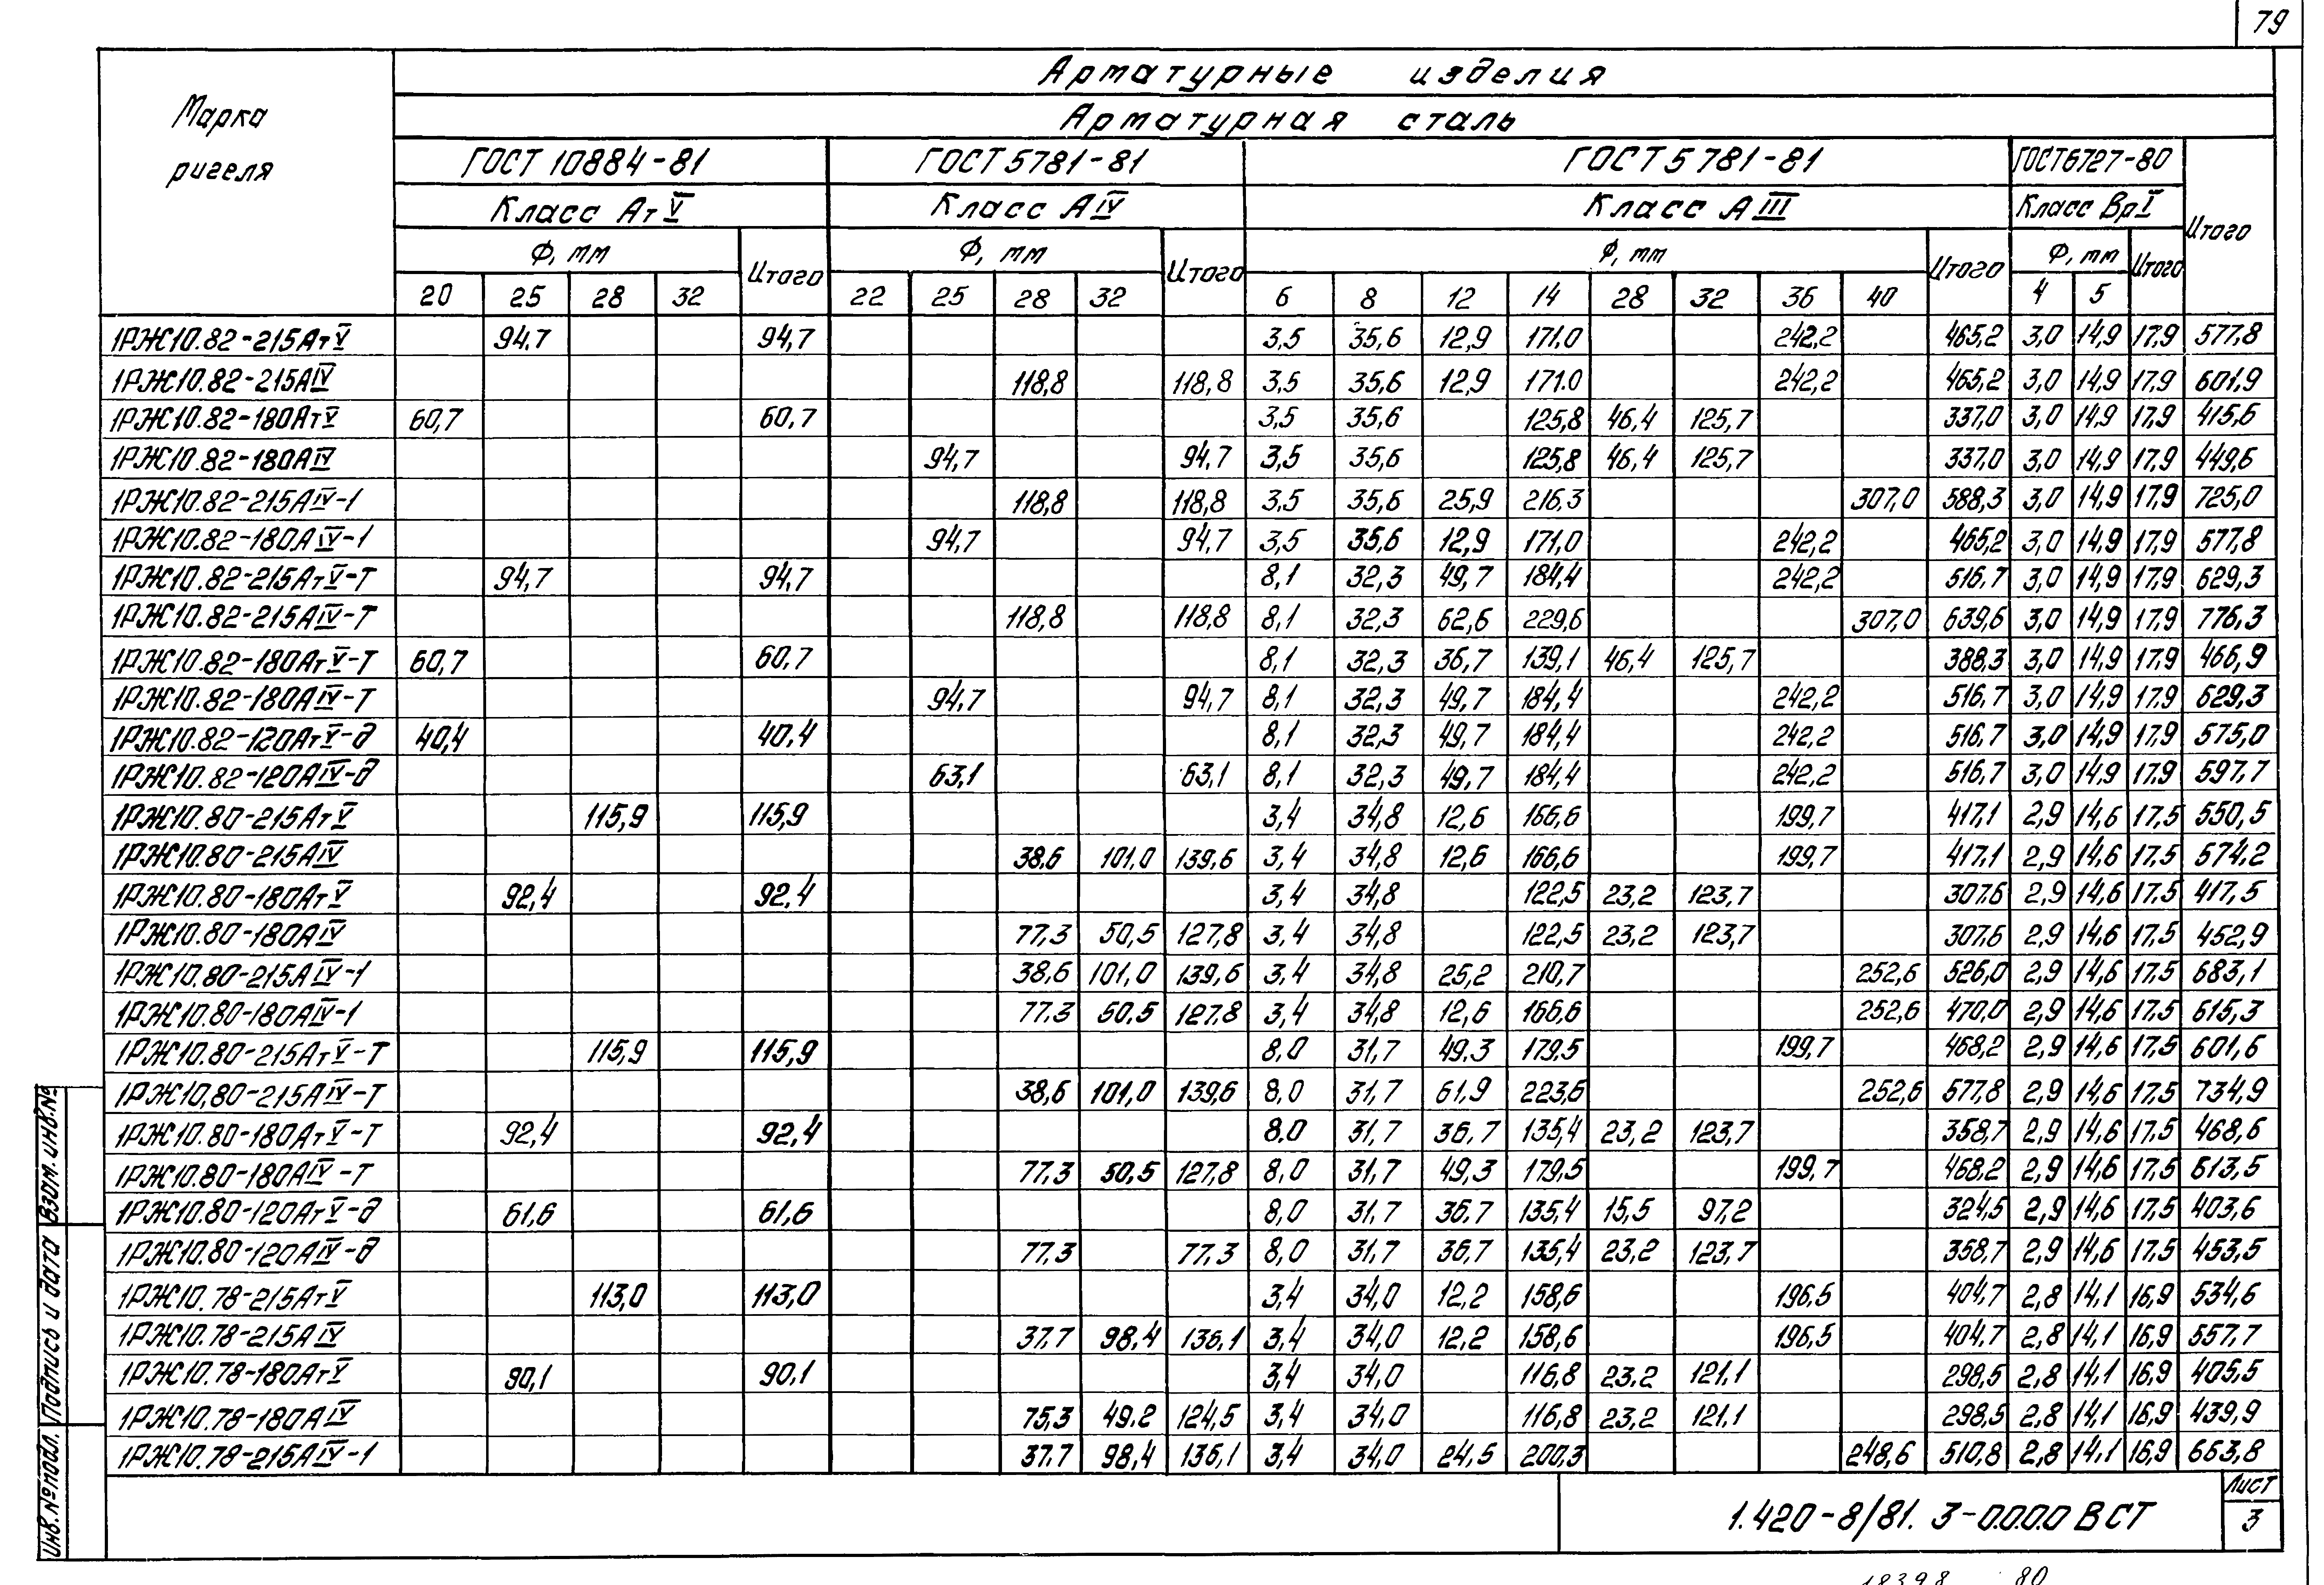 79
Марка ригеля
Арматурные изделия
Арматурная сталь
ГОСТ 10884-81 ГОСТ 5781-81 ГОСТ 5781-81 ГОСТ 6727-80 Итого
Класс Ат V Класс А IV Класс А III Класс Вр I
Ф, мм Итого Ф, мм Итого Ф, мм Итого Ф, мм Итого
20 25 28 32 22 25 28 32 6 8 12 14 28 32 36 40 4 5
1РЖ10.82-215АтV 94,7 94,7 3,5 35,6 12,9 171.0 242,2 465,2 3,0 14,9 17,9 577,8
1РЖ10.82-215АIV 118,8 118,8 3,5 35,6 12,9 171.0 242,2 465,2 3,0 14,9 17,9 601,9
1РЖ10.82-180АтV 60,7 60,7 3,5 35,6 125,8 46,4 125,7 337,0 3,0 14,9 17,9 415,6
1РЖ10.82-180АIV 94,7 94,7 3,5 35,6 125,8 46,4 125,7 337,0 3,0 14,9 17,9 449,6
1РЖ10.82-215АIV-1 118,8 118,8 3,5 35,6 25,9 216,3 307,0 588,3 3,0 14,9 17,9 725,0
1РЖ10.82-180АIV-1 94,7 94,7 3,5 35,6 12,9 171,0 242,2 465,2 3,0 14,9 17,9 577,8
1РЖ10.82-215АтV-Т 94,7 94,7 8,1 32,3 49,7 184,4 242,2 516,7 3,0 14,9 17,9 629,3
1РЖ10.82-215АIV-Т 118,8 118,8 8,1 32,3 62,6 229,6 307,0 639,6 3,0 14,9 17,9 776,3
1РЖ10.82-180АтV-Т 60,7 60,7 8,1 32,3 36,7 139,1 46,4 125,7 388,3 3,0 14,9 17,9 466,9
1РЖ10.82-180АIV-Т 94,7 94,7 8,1 32,3 49,7 184,4 242,2 516,7 3,0 14,9 17,9 629,3
1РЖ10.82-120АтV-д 40,4 40,4 8,1 32,3 49,7 184,4 242,2 516,7 3,0 14,9 17,9 575,0
1РЖ10.82-120АIV-д 63,1 63,1 8,1 32,3 49,7 184,4 242,2 516,7 3,0 14,9 17,9 597,7
1РЖ10.80-215АтV 115,9 115,9 3,4 34,8 12,6 166,6 199,7 417,1 2,9 14,6 17,5 550,5
1РЖ10.80-215АIV 38,6 101,0 139,6 3,4 34,8 12,6 166,6 199,7 417,1 2,9 14,6 17,5 574,2
1РЖ10.80-180АтV 92,4 92,4 3,4 34,8 122,5 23,2 123,7 307,6 2,9 14,6 17,5 417,5
1РЖ10.80-180АIV 77,3 50,5 127,8 3,4 34,8 122,5 23,2 123,7 307,6 2,9 14,6 17,5 452,9
1РЖ10.80-215АIV-1 38,6 101,0 139,6 3,4 34,8 25,2 210,7 252,6 526,0 2,9 14,6 17,5 683,1
1РЖ10.80-180АIV-1 77,3 50,5 127,8 3,4 34,8 12,6 166,6 252,6 470,0 2,9 14,6 17,5 615,3
1РЖ10.80-215АтV-Т 115,9 115,9 8,0 31,7 49,3 179,5 199,7 468,2 2,9 14,6 17,5 601,6
1РЖ10.80-215АIV-Т 38,6 101,0 139,6 8,0 31,7 61,9 223,6 252,6 577,8 2,9 14,6 17,5 734,9
1РЖ10.80-180АтV-Т 92,4 92,4 8,0 31,7 36,7 135,4 23,2 123,7 358,7 2,9 14,6 17,5 468,6
1РЖ10.80-180АIV-Т 77,3 50,5 127,8 8,0 31,7 49,3 179,5 199,7 468,2 2,9 14,6 17,5 613,5
1РЖ10.80-120АтV-д 61,6 61,6 8,0 31,7 36,7 135,4 15,5 97,2 324,5 2,9 14,6 17,5 403,6
1РЖ10.80-120АIV-д 77,3 77,3 8,0 31,7 36,7 135,4 23,2 123,7 358,7 2,9 14,6 17,5 453,5
1РЖ10.78-215АтV 113,0 113,0 3,4 34,0 12,2 158,6 196,5 404,7 2,8 14,1 16,9 534,6
1РЖ10.78-215АIV 37,7 98,4 136,1 3,4 34,0 12,2 158,6 196,5 404,7 2,8 14,1 16,9 557,7
1РЖ10.78-180АтV 90,1 90,1 3,4 34,0 116,8 23,2 121,1 298,5 2,8 14,1 16,9 405,5
1РЖ10.78-180АIV 75,3 49,2 124,5 3,4 34,0 116,8 23,2 121,1 298,5 2,8 14,1 16,9 439,9
1РЖ10.78-215АIV-1 37,7 98,4 136,1 3,4 34,0 24,5 200,3 248,6 510,8 2,8 14,1 16,9 663,8
Инв.№ подл. Подпись и дата Взам. инв.№
1.420-8/81. 3-0.0.0.0 ВСТ
Лист
3
18398 80